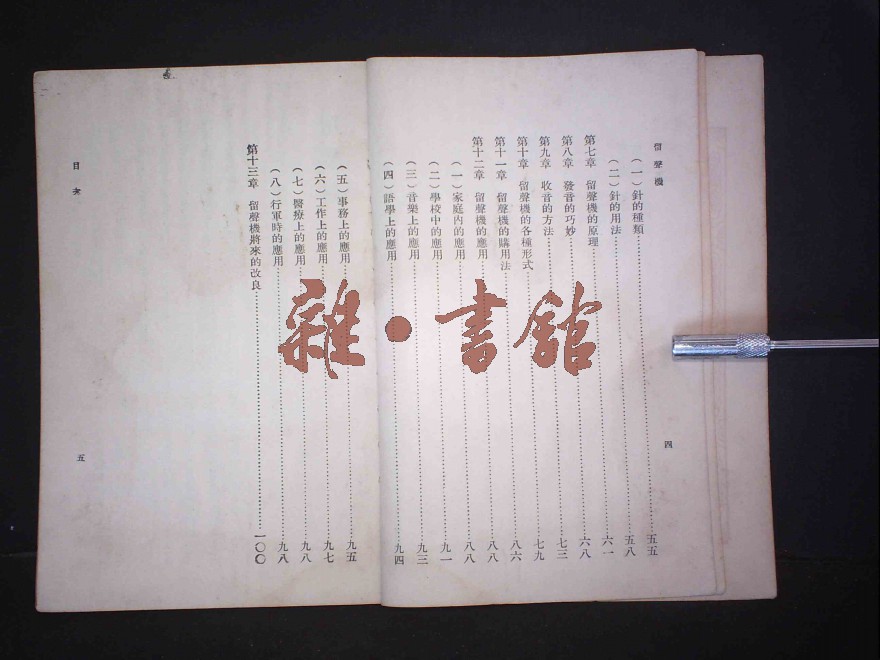 留聲機
（一）針的種類……五五
（二）針的用法……五八
第七章　留聲機的原理……六一
第八章　發音的巧妙……六八
第九章　收音的方法……七三
第十章　留聲機的各種形式……七九
第十一章　留聲機的購用法……八六
第十二章　留聲機的應用……八八
（一）家庭內的應用……八八
（二）學校中的應用……九一
（三）音樂上的應用……九三
（四）語學上的應用……九四
四
（五）事務上的應用……九五
（六）工作上的應用……九七
（七）醫療上的應用……九八
（八）行軍時的應用……九八
第十三章　留聲機將來的改良……一〇〇
目次
五
雜·書館